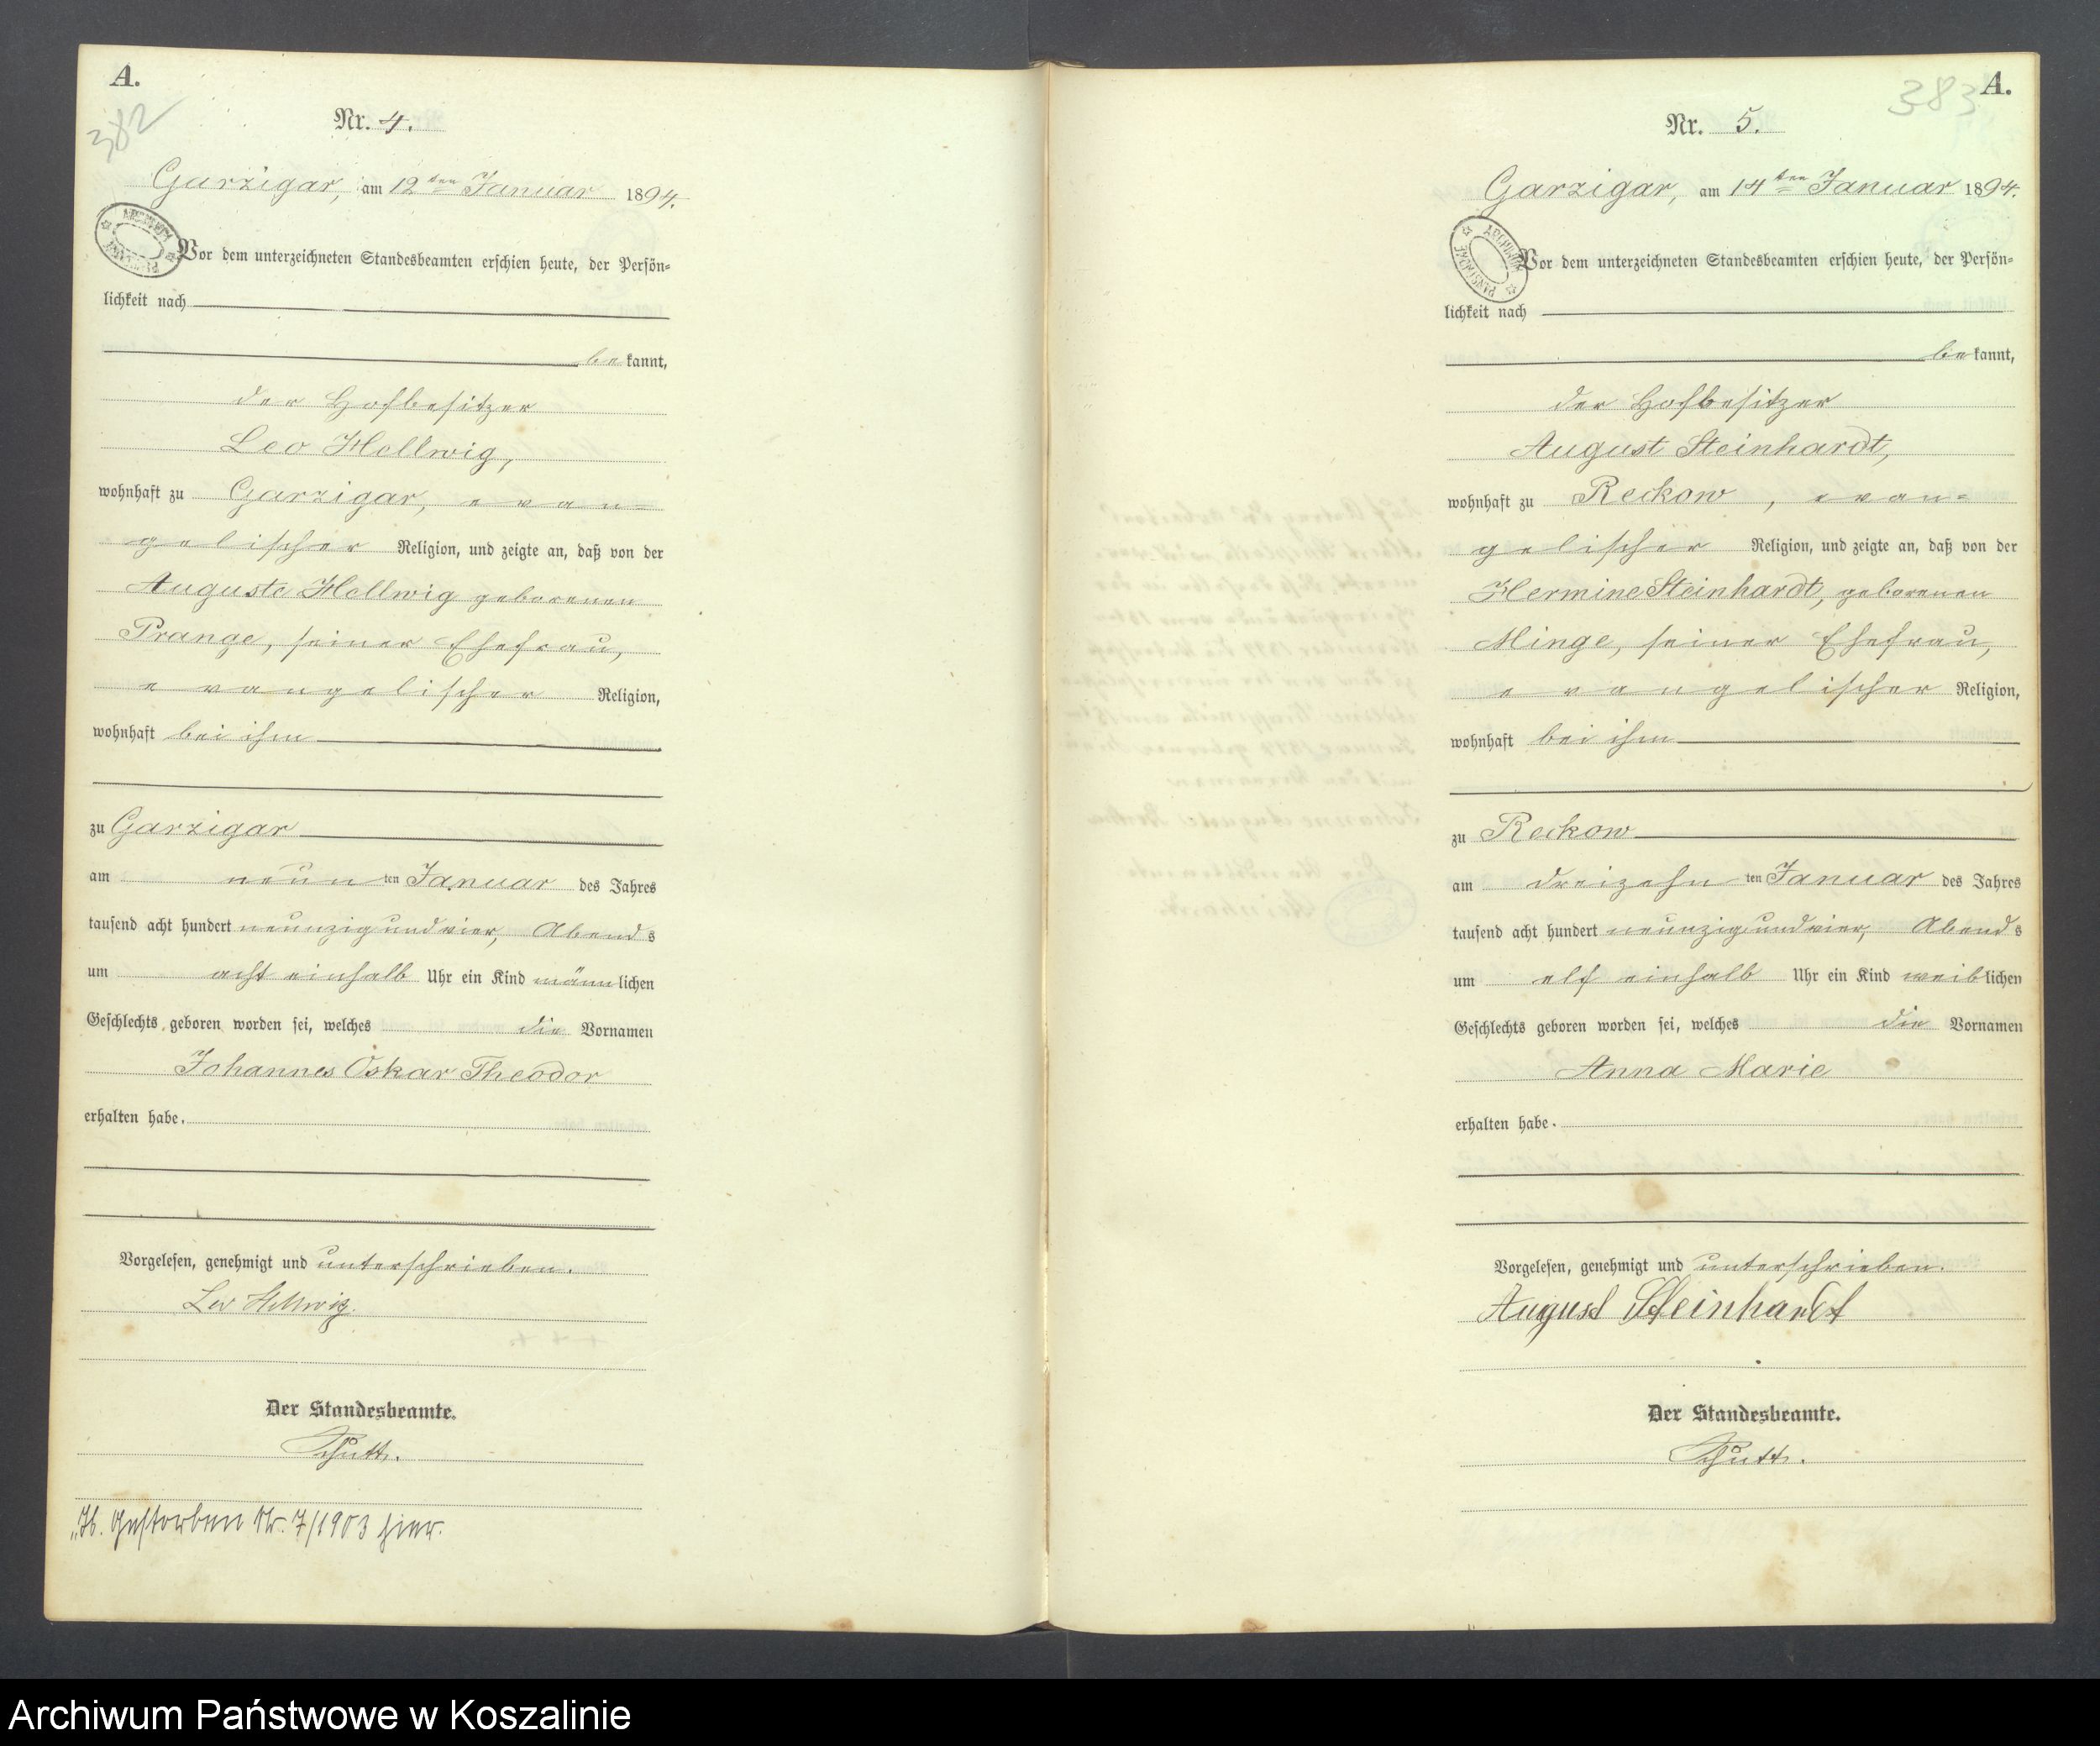 A.
382
Nr. 4.
Garzigar, am 12ten Januar 1894.
ARCHIWUM PAŃSTWOWE
Vor dem unterzeichneten Standesbeamten erschien heute, der Persön=
lichkeit nach
bekannt,
der Hofbesitzer
Leo Hellwig,
wohnhaft zu Garzigar, evan=
gelischer Religion, und zeigte an, daß von der
Auguste Hellwig geborenen
Prange, seiner Ehefrau,
evangelischer Religion,
wohnhaft bei ihm
zu Garzigar
am neunten Januar des Jahres
tausend acht hundert neunzig und vier, Abends
um acht einhalb Uhr ein Kind männlichen
Geschlechts geboren worden sei, welches die Vornamen
Johannes Oskar Theodor
erhalten habe.
Vorgelesen, genehmigt und unterschrieben.
Leo Hellwig.
Der Standesbeamte.
Schutt.
Gestorben Nr. 7/1903 hier.
A.
383
Nr. 5.
Garzigar, am 14ten Januar 1894.
ARCHIWUM PAŃSTWOWE
Vor dem unterzeichneten Standesbeamten erschien heute, der Persön=
lichkeit nach
bekannt,
der Hofbesitzer
August Steinhardt,
wohnhaft zu Reckow, evan=
gelischer Religion, und zeigte an, daß von der
Hermine Steinhardt, geborenen
Minge, seiner Ehefrau,
evangelischer Religion,
wohnhaft bei ihm
zu Reckow
am dreizehnten Januar des Jahres
tausend acht hundert neunzig und vier, Abends
um elf einhalb Uhr ein Kind weiblichen
Geschlechts geboren worden sei, welches die Vornamen
Anna Marie
erhalten habe.
Vorgelesen, genehmigt und unterschrieben.
August Steinhardt
Der Standesbeamte.
Schutt.
Archiwum Państwowe w Koszalinie